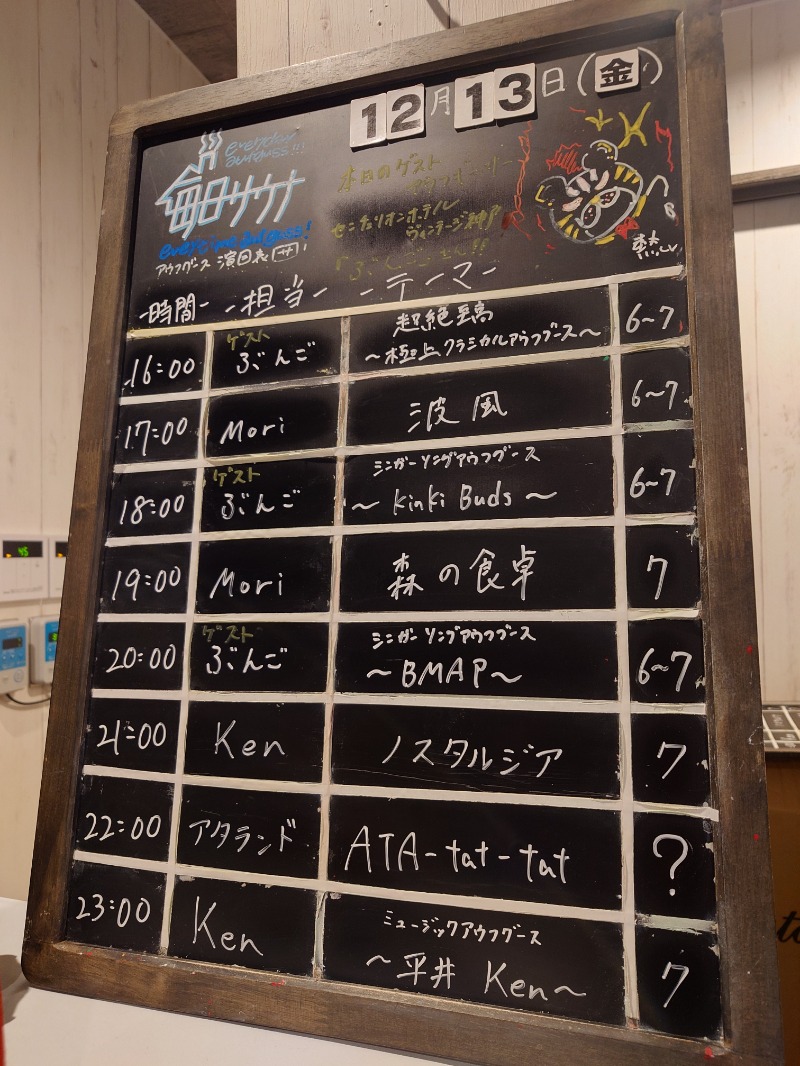 12月13日(金)
everyday
aufguss!!!
毎日サウナ
everyone aufguss!
アウフグース 演目表
本日のゲスト
アウフギーサー
センチュリオンホテル
ヴィンテージ神戸
「ぶんごさん!!
熱
-時間- -担当- -テーマ-
16:00 ゲスト ぶんご 超絶至高 6~7
~極上クラシカルアウフグース~
17:00 Mori 波風 6~7
18:00 ゲスト ぶんご シンガーソングアウフグース 6~7
~ Kinki Buds ~
19:00 Mori 森の食卓 7
20:00 ゲスト ぶんご シンガーソングアウフグース 6~7
~BMAP~
21:00 Ken ノスタルジア 7
22:00 アタランド ATA-tat-tat ?
23:00 Ken ミュージックアウフグース 7
~平井 Ken~
45